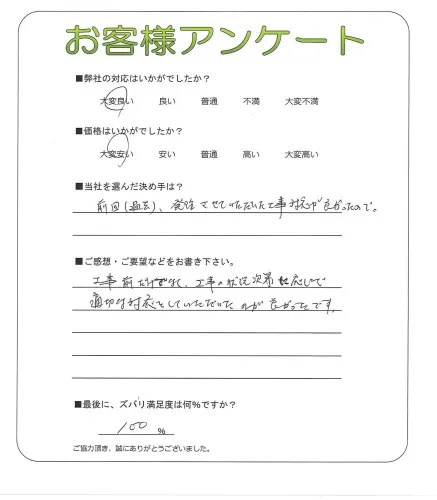 お客様アンケート
■弊社の対応はいかがでしたか?
大変良い 良い 普通 不満 大変不満
■価格はいかがでしたか?
大変安い 安い 普通 高い 大変高い
■当社を選んだ決め手は?
前回(過去)、発注させていただいた工事対応が良かったので。
■ご感想・ご要望などをお書き下さい。
工事前だけでなく、工事の状況次第に応じて
適切な対応としていただいたのが良かったです。
■最後に、ズバリ満足度は何%ですか?
100 %
ご協力頂き、誠にありがとうございました。